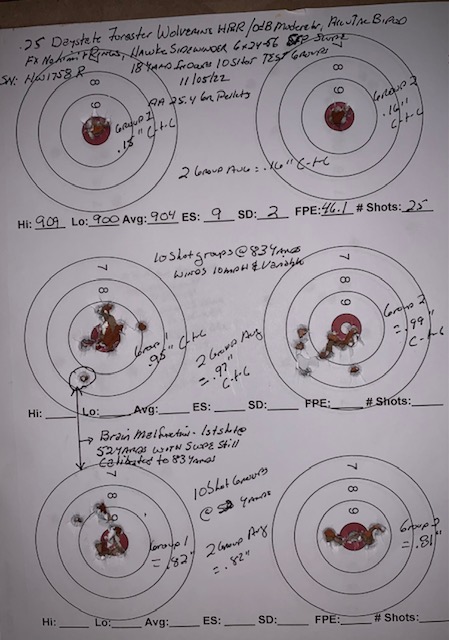 .25 Daystate Forester Wolverine HP&R/OdB Moderator, AccuTac Bipod
FX NoLimit Rings, Hawke Sidewinder 6x24-56 SFP Scope
SN: HW1758R 18 yard Indoors 10 Shot Test Groups
11/05/22
AA 25.4 Gr Pellets
8
9
Group 1
.15" C-t-C
8
9
Group 2
.16"
C-t-C
2 Group Avg = .16" C-t-C
Hi: 909 Lo: 900 Avg: 904 ES: 9 SD: 2 FPE: 46.1 # Shots: 25
10 Shot groups @ 83 yards
Winds 10 mph & Variable
7
8
Group 1
.95" C-t-C
2 Group Avg
= .97"
C-t-C
7
8
9
Group 2
= .99"
C-t-C
Hi: Lo: Avg: ES: SD: FPE: # Shots:
Brain Malfunction - 1st shot @
52 yards with Scope Still
Calibrated to 83 yards
7
8
9
Group 1
= .82"
10 Shot Groups
@ 52 yards
2 Group Avg
= .82"
7
8
9
Group 2
= .81"
Hi: Lo: Avg: ES: SD: FPE: # Shots: